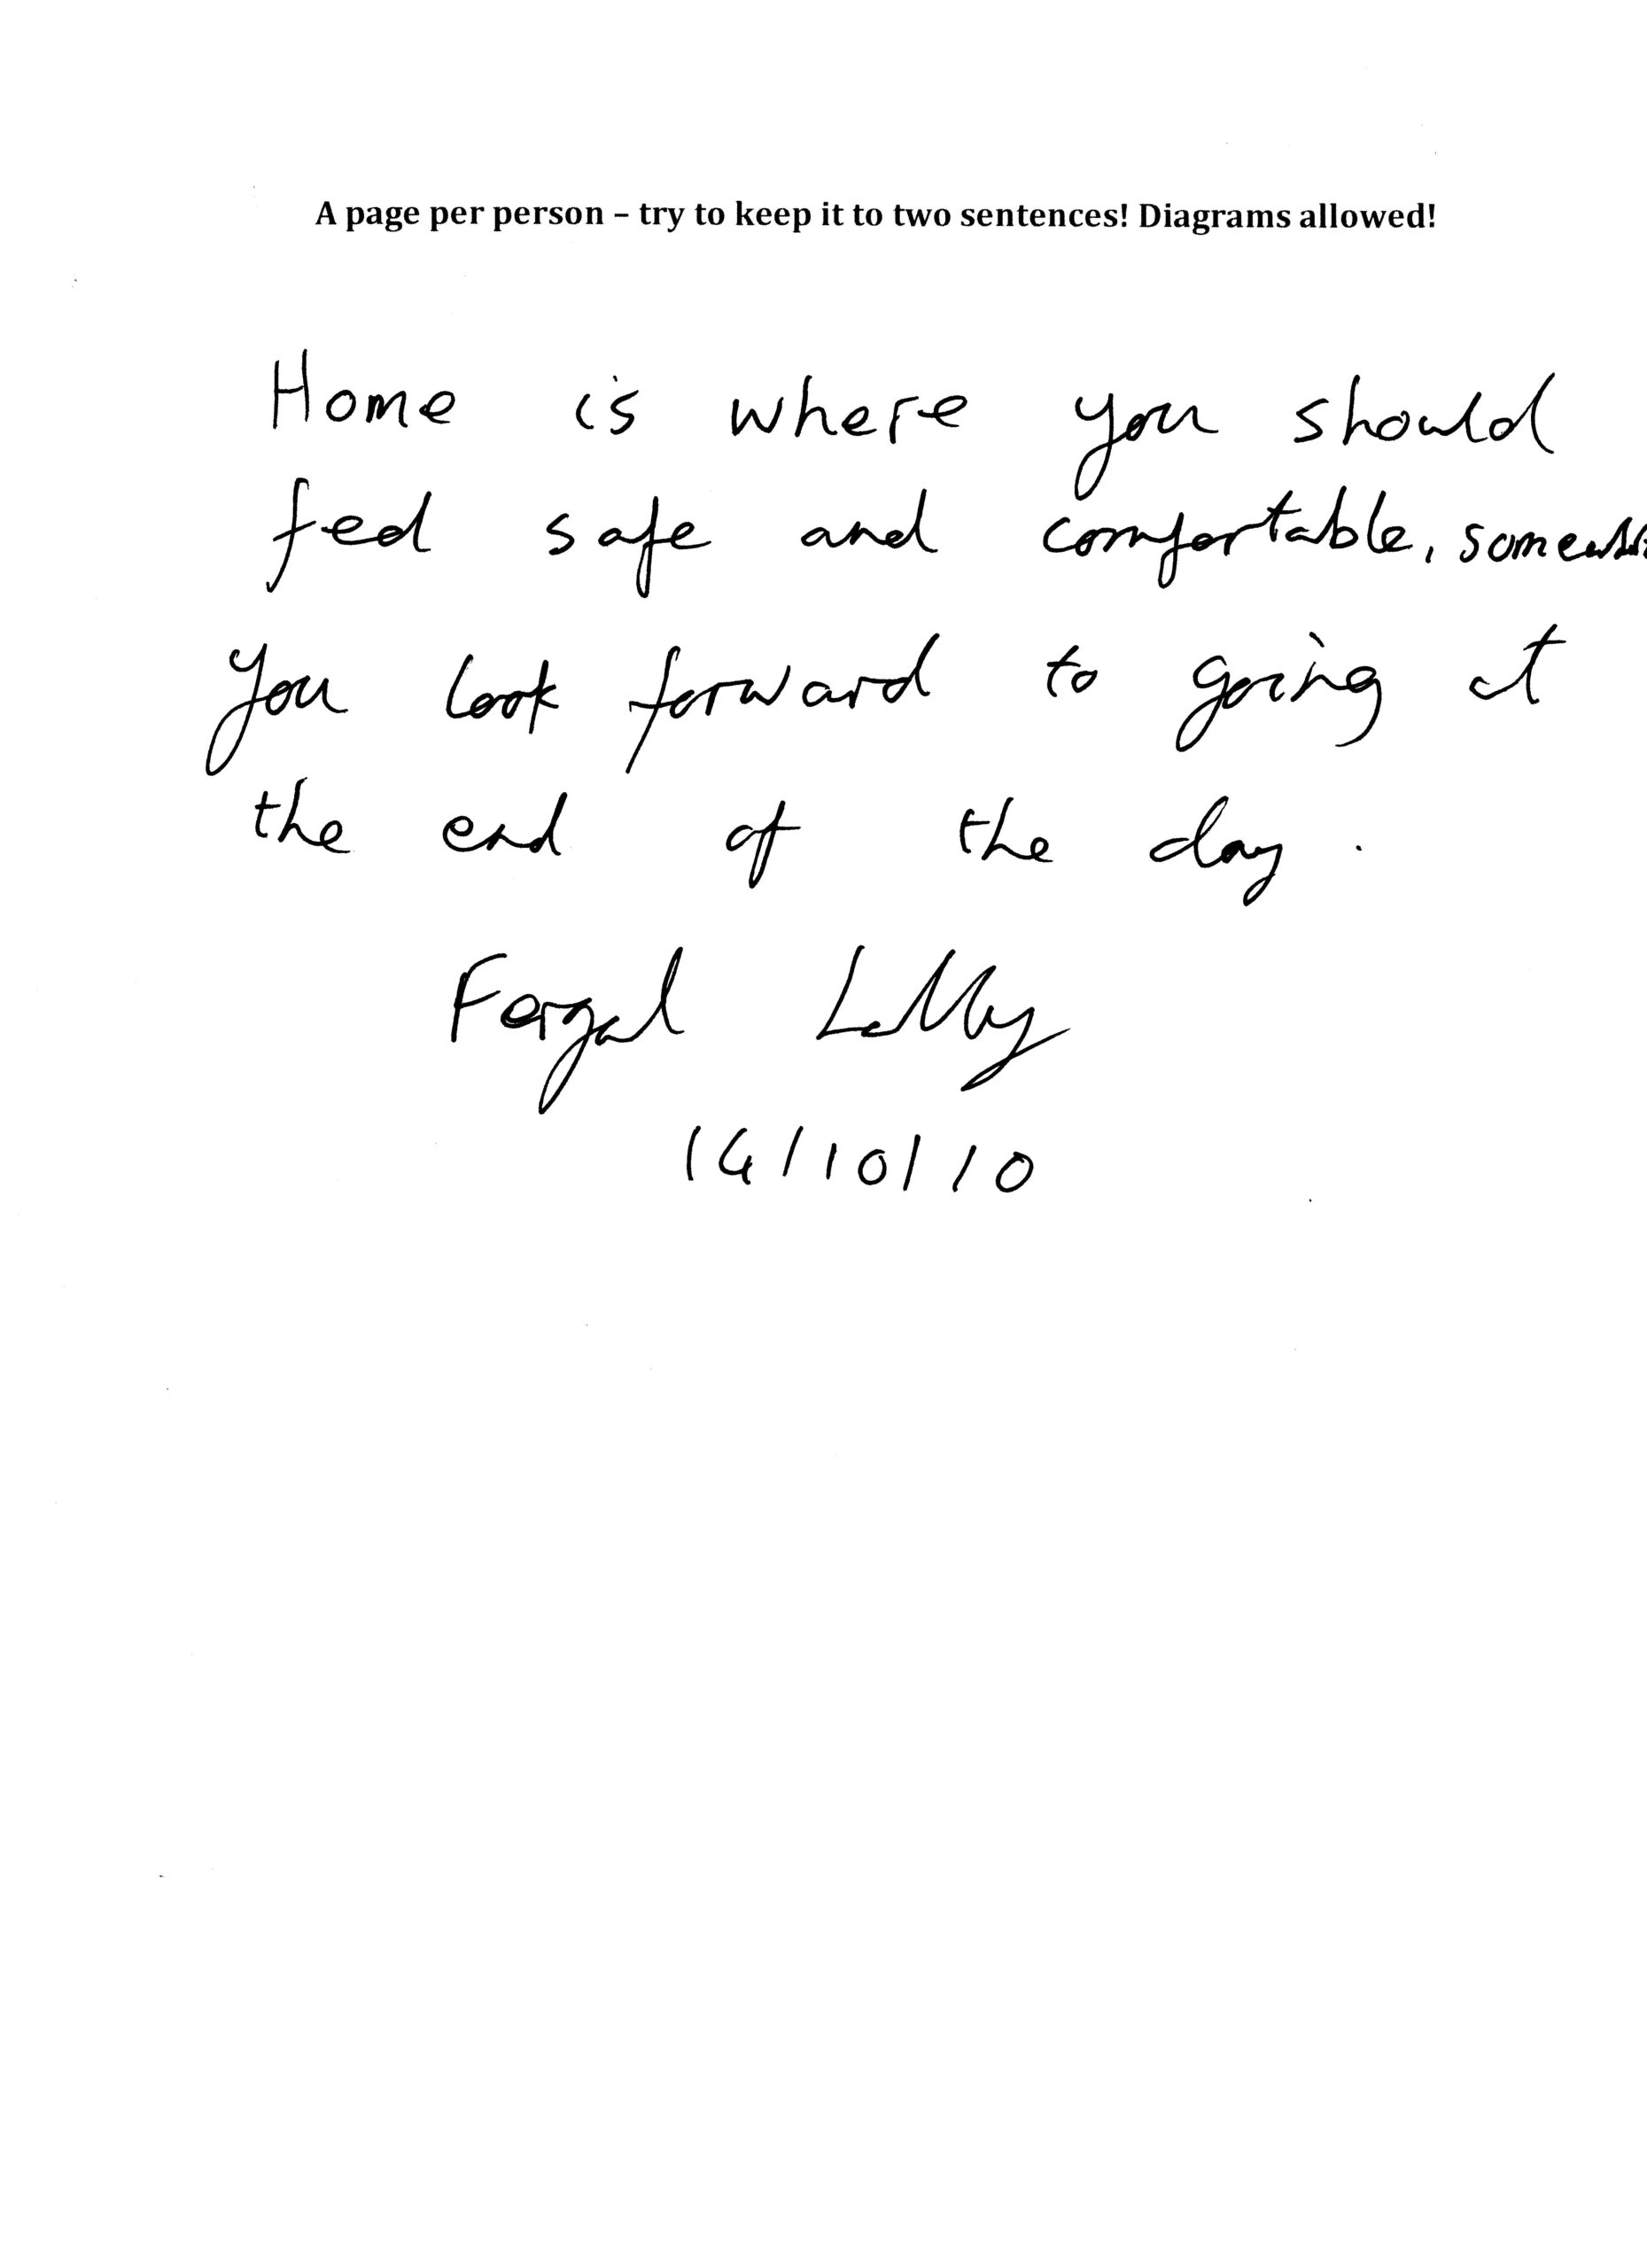 A page per person – try to keep it to two sentences! Diagrams allowed!
Home is where you should
feel safe and comfortable, somewh
you look forward to going at
the end of the day.
Fergal
14/10/10